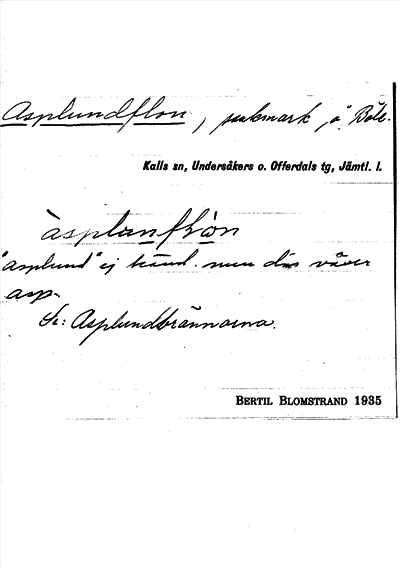 Asplundflon, sankmark, å Böle.
Kalls sn, Undersåkers o. Offerdals tg, Jämtl. l.
àsplanflòn
"asplund" ej känd. men där växer
asp.
Se: Asplundbrännorna.
BERTIL BLOMSTRAND 1935